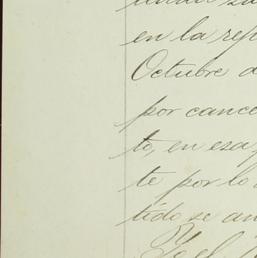 en la rep
Octubre d
por cance
to, en esa
te por lo
tido se an
Yo el